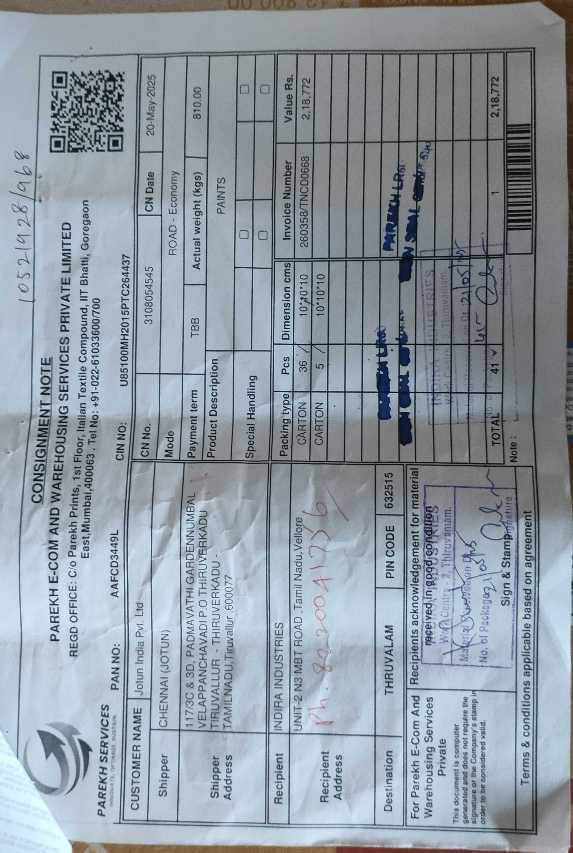 105219281968
CONSIGNMENT NOTE
PAREKH E-COM AND WAREHOUSING SERVICES PRIVATE LIMITED
REGD OFFICE: C/o Parekh Prints, 1st Floor, Italian Textile Compound, IIT Bhatti, Goregaon
East,Mumbai,400063 . Tel No: +91-022-61033600/700
PAREKH SERVICES
PAN NO: AAFCD3449L CIN NO: U85100MH2015PTC264437
CUSTOMER NAME Jotun India Pvt. Ltd
CN No. 3108054545 CN Date 20-May-2025
Shipper CHENNAI (JOTUN)
Mode ROAD - Economy
Shipper Address
117/3C & 3D, PADMAVATHI GARDENNUMBAL
VELAPPANCHAVADI P.O THIRUVERKADU
TIRUVALLUR - THIRUVERKADU -
TAMILNADU,Tiruvallur ,600077
Payment term TBB Actual weight (kgs) 810.00
Product Description PAINTS
Special Handling
Recipient INDIRA INDUSTRIES
Recipient Address
UNIT-2 N3 MBT ROAD .Tamil Nadu,Vellore
Ph. 8220041256
Packing type Pcs Dimension cms Invoice Number Value Rs.
CARTON 36 10*10*10 260358/TNCD0668 2,18,772
CARTON 5 10*10*10
Destination THRUVALAM PIN CODE 632515
PAREKH LRs
For Parekh E-Com And
Warehousing Services
Private
This document is computer
generated and does not require the
signature or the Company's stamp in
order to be considered valid.
Recipients acknowledgement for material
received in good condition
INDUSTRIES
Thiruvalam.
No. of Packages
21/05/25
Sign & Stamp
Signature
INDIRA INDUSTRIES
Thiruvalam.
21/05/25
TOTAL 41 1 2,18,772
Note :
Terms & conditions applicable based on agreement